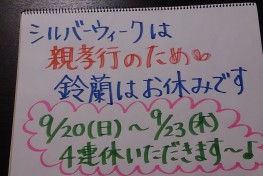 シルバーウィークは
親孝行のため
鈴蘭はお休みです
9/20(日)〜9/23(木)
4連休いただきます〜♪